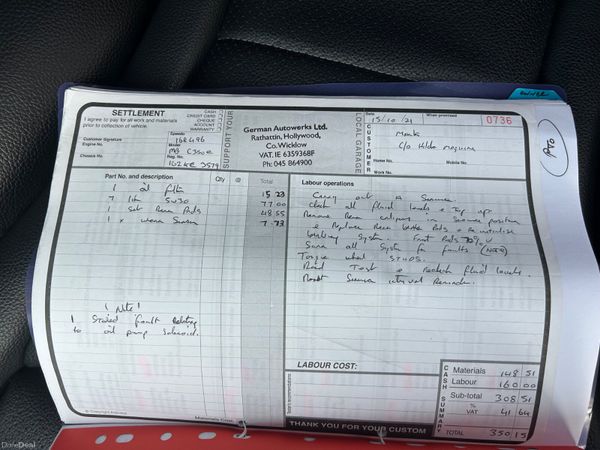 SETTLEMENT
I agree to pay for all work and materials
prior to collection of vehicle.
CASH
CREDIT CARD
CHEQUE
ACCOUNT
WARRANTY
Customer Signature
Engine No.
Chassis No.
Speedo
Model
MB C350e
Reg. No.
SUPPORT YOUR
LOCAL GARAGE
German Autoworks Ltd.
Rathattin, Hollywood,
Co.Wicklow
VAT. IE 6359368F
Ph: 045 864900
Date
15/10/21
When promised
0736
CUSTOMER
Mark
C/o Hilda Maguire
Home No.
Mobile No.
Work No.
Part No. and description
Qty
@
Total
1 oil filter 15 23
7 litre 5w30 77 00
1 set Rear Pads 48 55
1 x wear sensor 7 73
! Note !
1 Stored fault Relating
to oil pump solenoid.
Labour operations
Carry out A Service
Check all fluid levels + Top up
Remove Rear calipers in service position
+ Replace Rear brake Pads +
System. Front Pads 70%
Scan all System for faults (Note)
Torque wheel STUDS.
Road Test + recheck fluid levels.
Reset Service interval Reminder.
LABOUR COST:
THANK YOU FOR YOUR CUSTOM
CASH SUMMARY
Materials 148 51
Labour 160 00
Sub-total 308 51
% VAT 41 64
TOTAL 350 15
DoneDeal